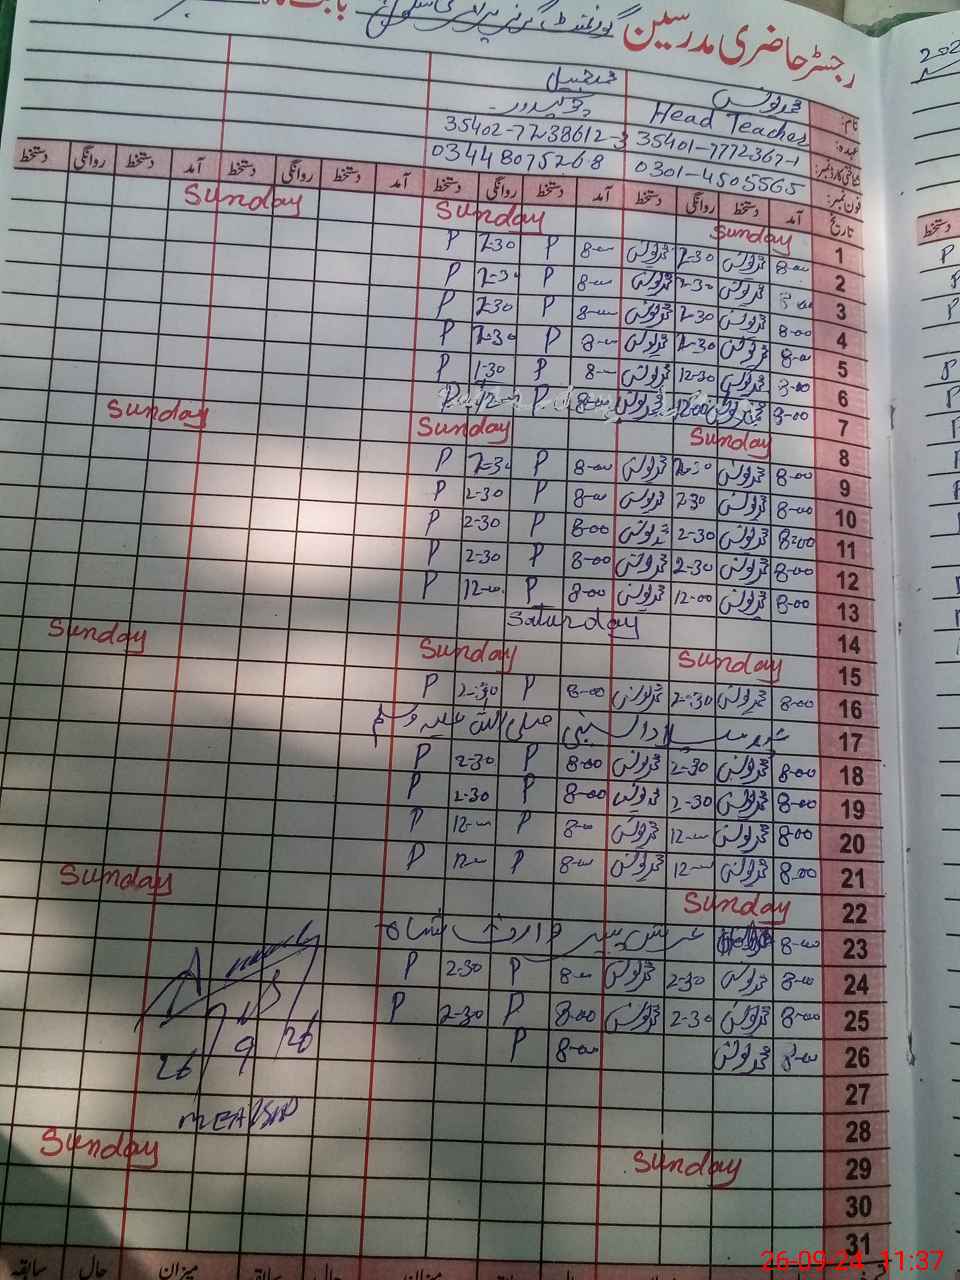 رجسٹر حاضری مدرسین گورنمنٹ گرلز پرائمری سکول بابت ماہ
نام: محمد یونس محمد جمیل
عہدہ: Head Teacher چوکیدار
شناختی کارڈ نمبر: 35401-7772367-1 35402-7238612-3
فون نمبر: 0301-4505565 03448075268
تاریخ آمد دستخط روانگی دستخط آمد دستخط روانگی دستخط آمد دستخط روانگی دستخط آمد دستخط روانگی دستخط
1 Sunday Sunday Sunday
2 8-00 محمد یونس 2-30 محمد یونس 8-00 P 2-30 P
3 8-00 محمد یونس 2-30 محمد یونس 8-00 P 2-30 P
4 8-00 محمد یونس 2-30 محمد یونس 8-00 P 2-30 P
5 8-00 محمد یونس 2-30 محمد یونس 8-00 P 2-30 P
6 8-00 محمد یونس 12-30 محمد یونس 8-00 P 1-30 P
7 8-00 محمد یونس 12-00 محمد یونس 8-00 P 12-00 P
8 Sunday Sunday Sunday
9 8-00 محمد یونس 2-30 محمد یونس 8-00 P 2-30 P
10 8-00 محمد یونس 2-30 محمد یونس 8-00 P 2-30 P
11 8-00 محمد یونس 2-30 محمد یونس 8-00 P 2-30 P
12 8-00 محمد یونس 2-30 محمد یونس 8-00 P 2-30 P
13 8-00 محمد یونس 12-00 محمد یونس 8-00 P 12-00 P
14 Saturday
15 Sunday Sunday Sunday
16 8-00 محمد یونس 2-30 محمد یونس 8-00 P 2-30 P
17 عید میلاد النبی صلی اللہ علیہ وسلم
18 8-00 محمد یونس 2-30 محمد یونس 8-00 P 2-30 P
19 8-00 محمد یونس 2-30 محمد یونس 8-00 P 2-30 P
20 8-00 محمد یونس 12-00 محمد یونس 8-00 P 12-00 P
21 8-00 محمد یونس 12-00 محمد یونس 8-00 P 12-00 P
22 Sunday Sunday
23 8-00 عرس پیر وارث شاہ
24 8-00 محمد یونس 2-30 محمد یونس 8-00 P 2-30 P
25 8-00 محمد یونس 2-30 محمد یونس 8-00 P 2-30 P
26 8-00 محمد یونس 8-00 P
27
28
29 Sunday Sunday
30
31
26/9/26
MEA
میزان حال سابقہ
26-09-24 11:37